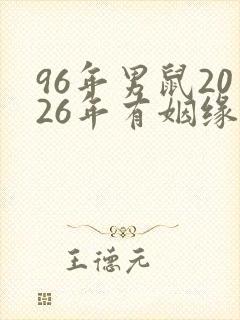 96年男鼠20
26年有姻缘
王德元